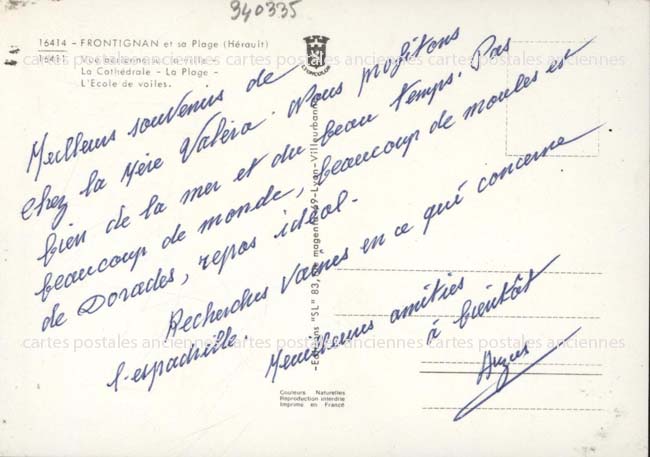 940335
16414 - FRONTIGNAN et sa Plage (Hérault)
16411 Vue aérienne sur la ville -
La Cathédrale - La Plage -
L'Ecole de voiles.
LYONCOLOR
Meilleurs souvenirs de
chez la Mère Valéra. Nous profitons
bien de la mer et du beau temps. Pas
beaucoup de monde, beaucoup de moules et
de Dorades, repos idéal.
Recherches vaines en ce qui concerne
l'espadrille.
Meilleures amitiés
à bientôt
-Editions "SL" 83, magenta-69-Lyon-Villeurbanne
Couleurs Naturelles
Reproduction interdite
Imprimé en France
cartes postales anciennes cartes postales anciennes cartes postales anciennes
cartes postales anciennes cartes postales anciennes cartes postales anciennes
cartes postales anciennes cartes postales anciennes cartes postales anciennes